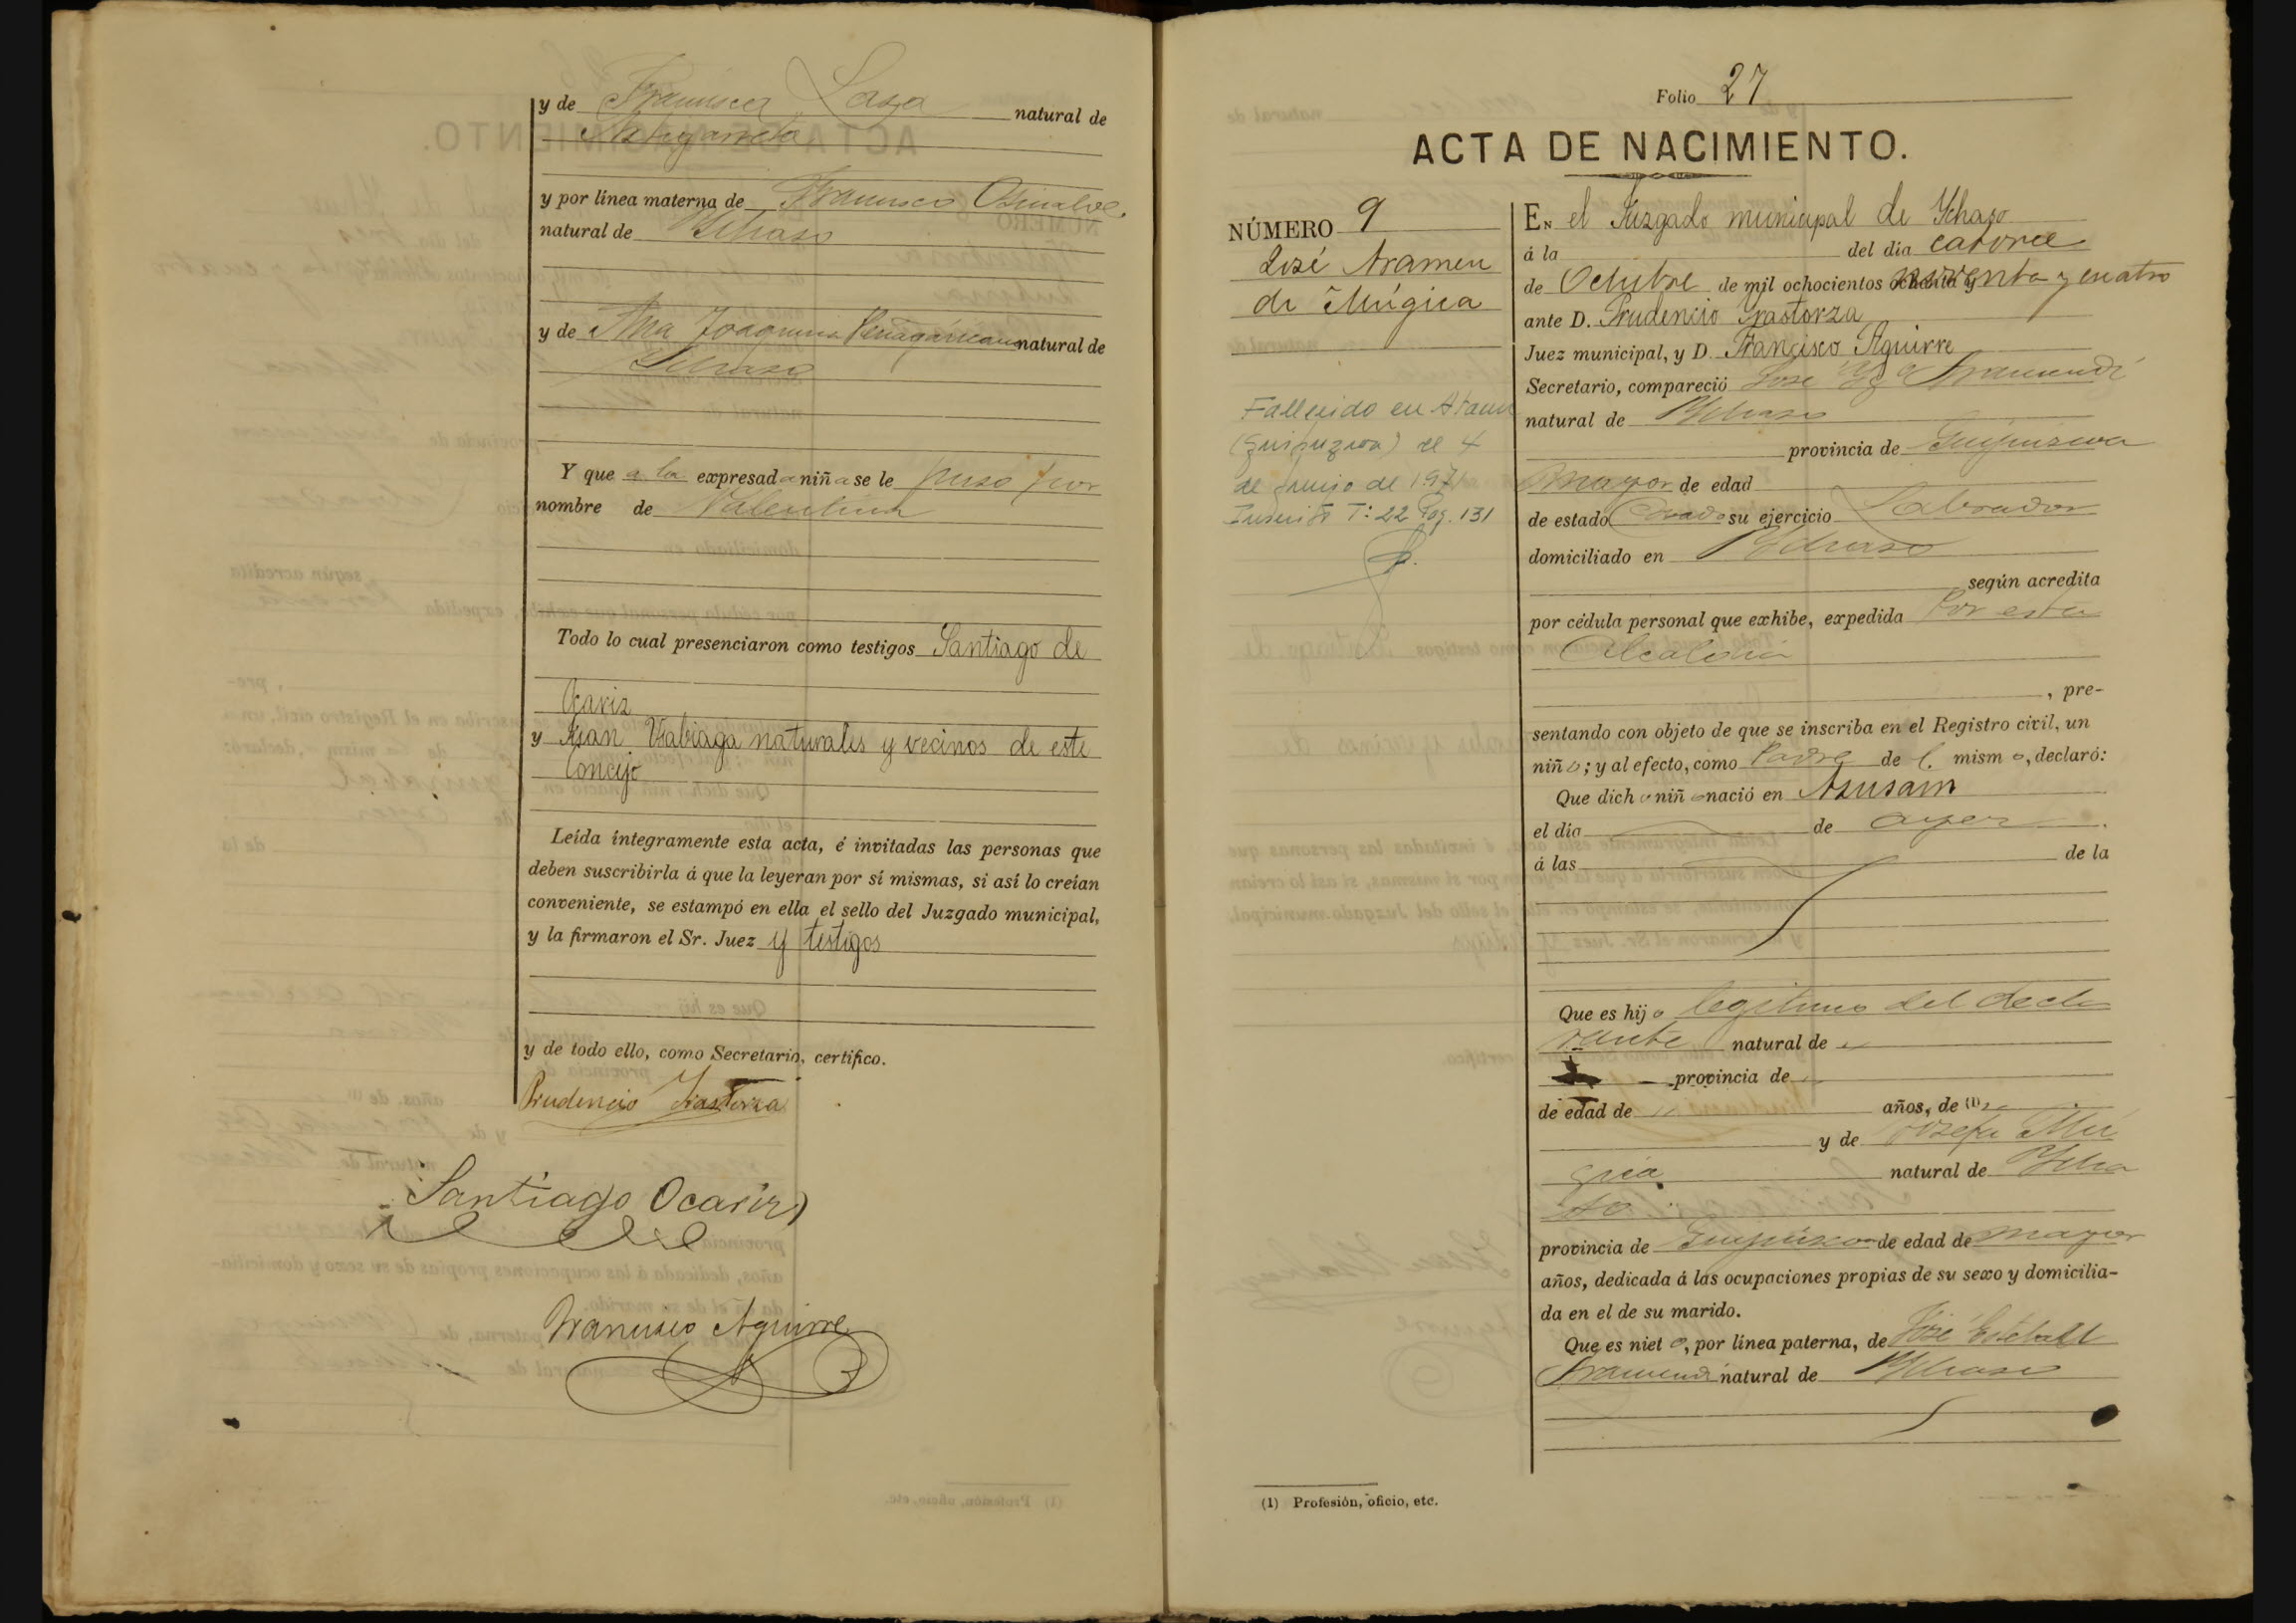 y de Francisca Lasa natural de
Astigarreta
y por línea materna de Francisco Osinalde,
natural de Ychaso
y de Ana Joaquina natural de
Ychaso
Y que a la expresada niña se le puso por
nombre de Valentina
Todo lo cual presenciaron como testigos Santiago de
Ocariz
y Juan Ysabiaga naturales y vecinos de este
Concejo
Leída íntegramente esta acta, é invitadas las personas que
deben suscribirla á que la leyeran por sí mismas, si así lo creían
conveniente, se estampó en ella el sello del Juzgado municipal,
y la firmaron el Sr. Juez y testigos
y de todo ello, como Secretario, certifico.
Prudencio Yrastorza
Santiago Ocariz
Francisco Aguirre
Folio 27
ACTA DE NACIMIENTO.
NÚMERO 9
José Aramen
di Múgica
Fallecido en Ataun
(Guipuzcoa) el 4
de Junio de 1971
Inscrito T: 22 Pag. 131
En el Juzgado municipal de Ychaso
á la del día catorce
de Octubre de mil ochocientos noventa y cuatro
ante D. Prudencio Yrastorza
Juez municipal, y D. Francisco Aguirre
Secretario, compareció José Yg.º Aramendi
natural de Ychaso
provincia de Guipuzcoa
mayor de edad
de estado Casado su ejercicio Labrador
domiciliado en Ychaso
según acredita
por cédula personal que exhibe, expedida Por esta
Alcaldia
, pre-
sentando con objeto de que se inscriba en el Registro civil, un
niño; y al efecto, como Padre de l. mismo, declaró:
Que dicho niño nació en
el día de ayer.
á las de la
Que es hijo legitimo del decla
rante natural de "
provincia de "
de edad de " años, de (1) "
y de Josefa Mú
gica natural de Ycha
so
provincia de Guipúzcoa de edad de mayor
años, dedicada á las ocupaciones propias de su sexo y domicilia-
da en el de su marido.
Que es nieto, por línea paterna, de José Esteban
Aramendi natural de Ychaso
(1) Profesión, oficio, etc.